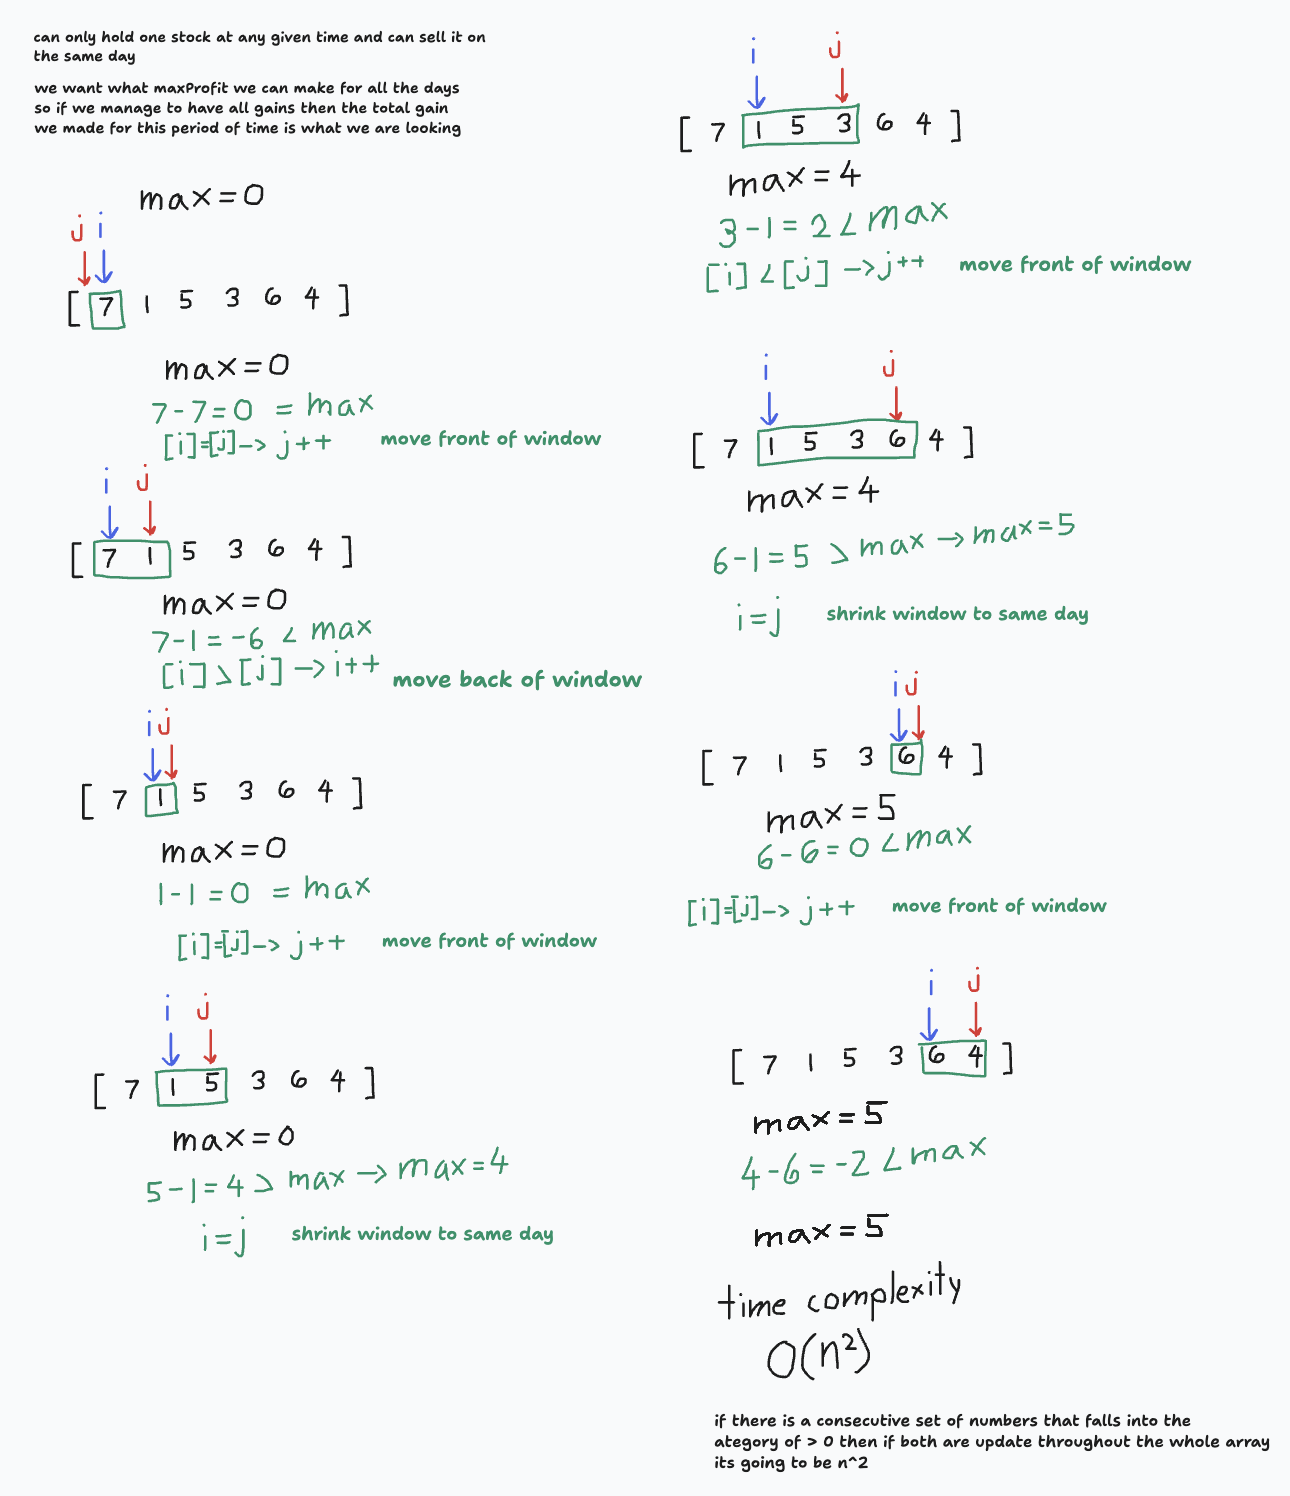 can only hold one stock at any given time and can sell it on
the same day
we want what maxProfit we can make for all the days
so if we manage to have all gains then the total gain
we made for this period of time is what we are looking
max=0
j i
[ 7 1 5 3 6 4 ]
max=0
7-7=0 = max
[i]=[j]-> j++ move front of window
i j
[ 7 1 5 3 6 4 ]
max=0
7-1=-6 < max
[i]>[j] -> i++ move back of window
i j
[ 7 1 5 3 6 4 ]
max=0
1-1=0 = max
[i]=[j]-> j++ move front of window
i j
[ 7 1 5 3 6 4 ]
max=0
5-1=4 > max -> max=4
i=j shrink window to same day
i j
[ 7 1 5 3 6 4 ]
max=4
3-1=2 < max
[i]<[j] ->j++ move front of window
i j
[ 7 1 5 3 6 4 ]
max=4
6-1=5 > max -> max=5
i=j shrink window to same day
i j
[ 7 1 5 3 6 4 ]
max=5
6-6=0 <max
[i]=[j]-> j++ move front of window
i j
[ 7 1 5 3 6 4 ]
max=5
4-6=-2 <max
max=5
time complexity
O(n²)
if there is a consecutive set of numbers that falls into the
ategory of > 0 then if both are update throughout the whole array
its going to be n^2